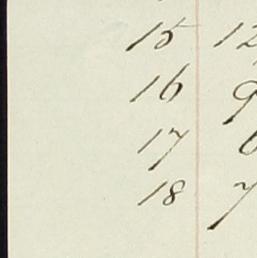 15 12
16 9
17 6
18 7